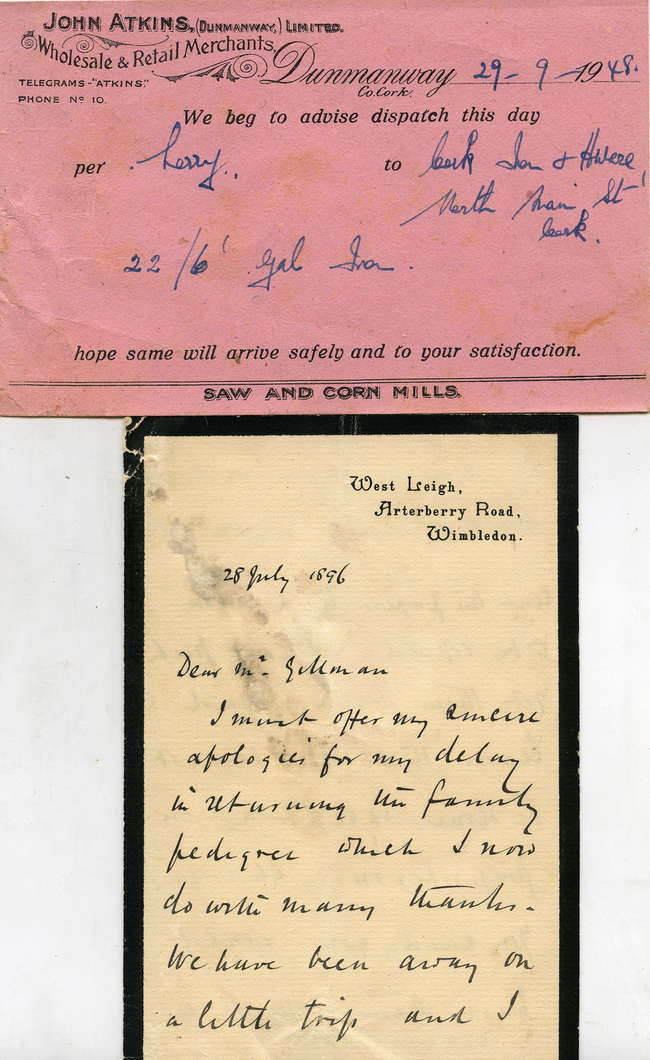 JOHN ATKINS, (DUNMANWAY,) LIMITED.
Wholesale & Retail Merchants,
TELEGRAMS-"ATKINS."
PHONE No 10.
Dunmanway 29-9-1948.
Co. Cork.
We beg to advise dispatch this day
per Lorry., to Cork Iron & H'ware
North Main St
Cork.
22/6' Gal Iron.
hope same will arrive safely and to your satisfaction.
SAW AND CORN MILLS.
West Leigh,
Arterberry Road,
Wimbledon.
28 July 1896
Dear Mr. Gillman
I must offer my sincere
apologies for my delay
in returning the family
pedigree which I now
do with many thanks -
We have been away on
a little trip and I